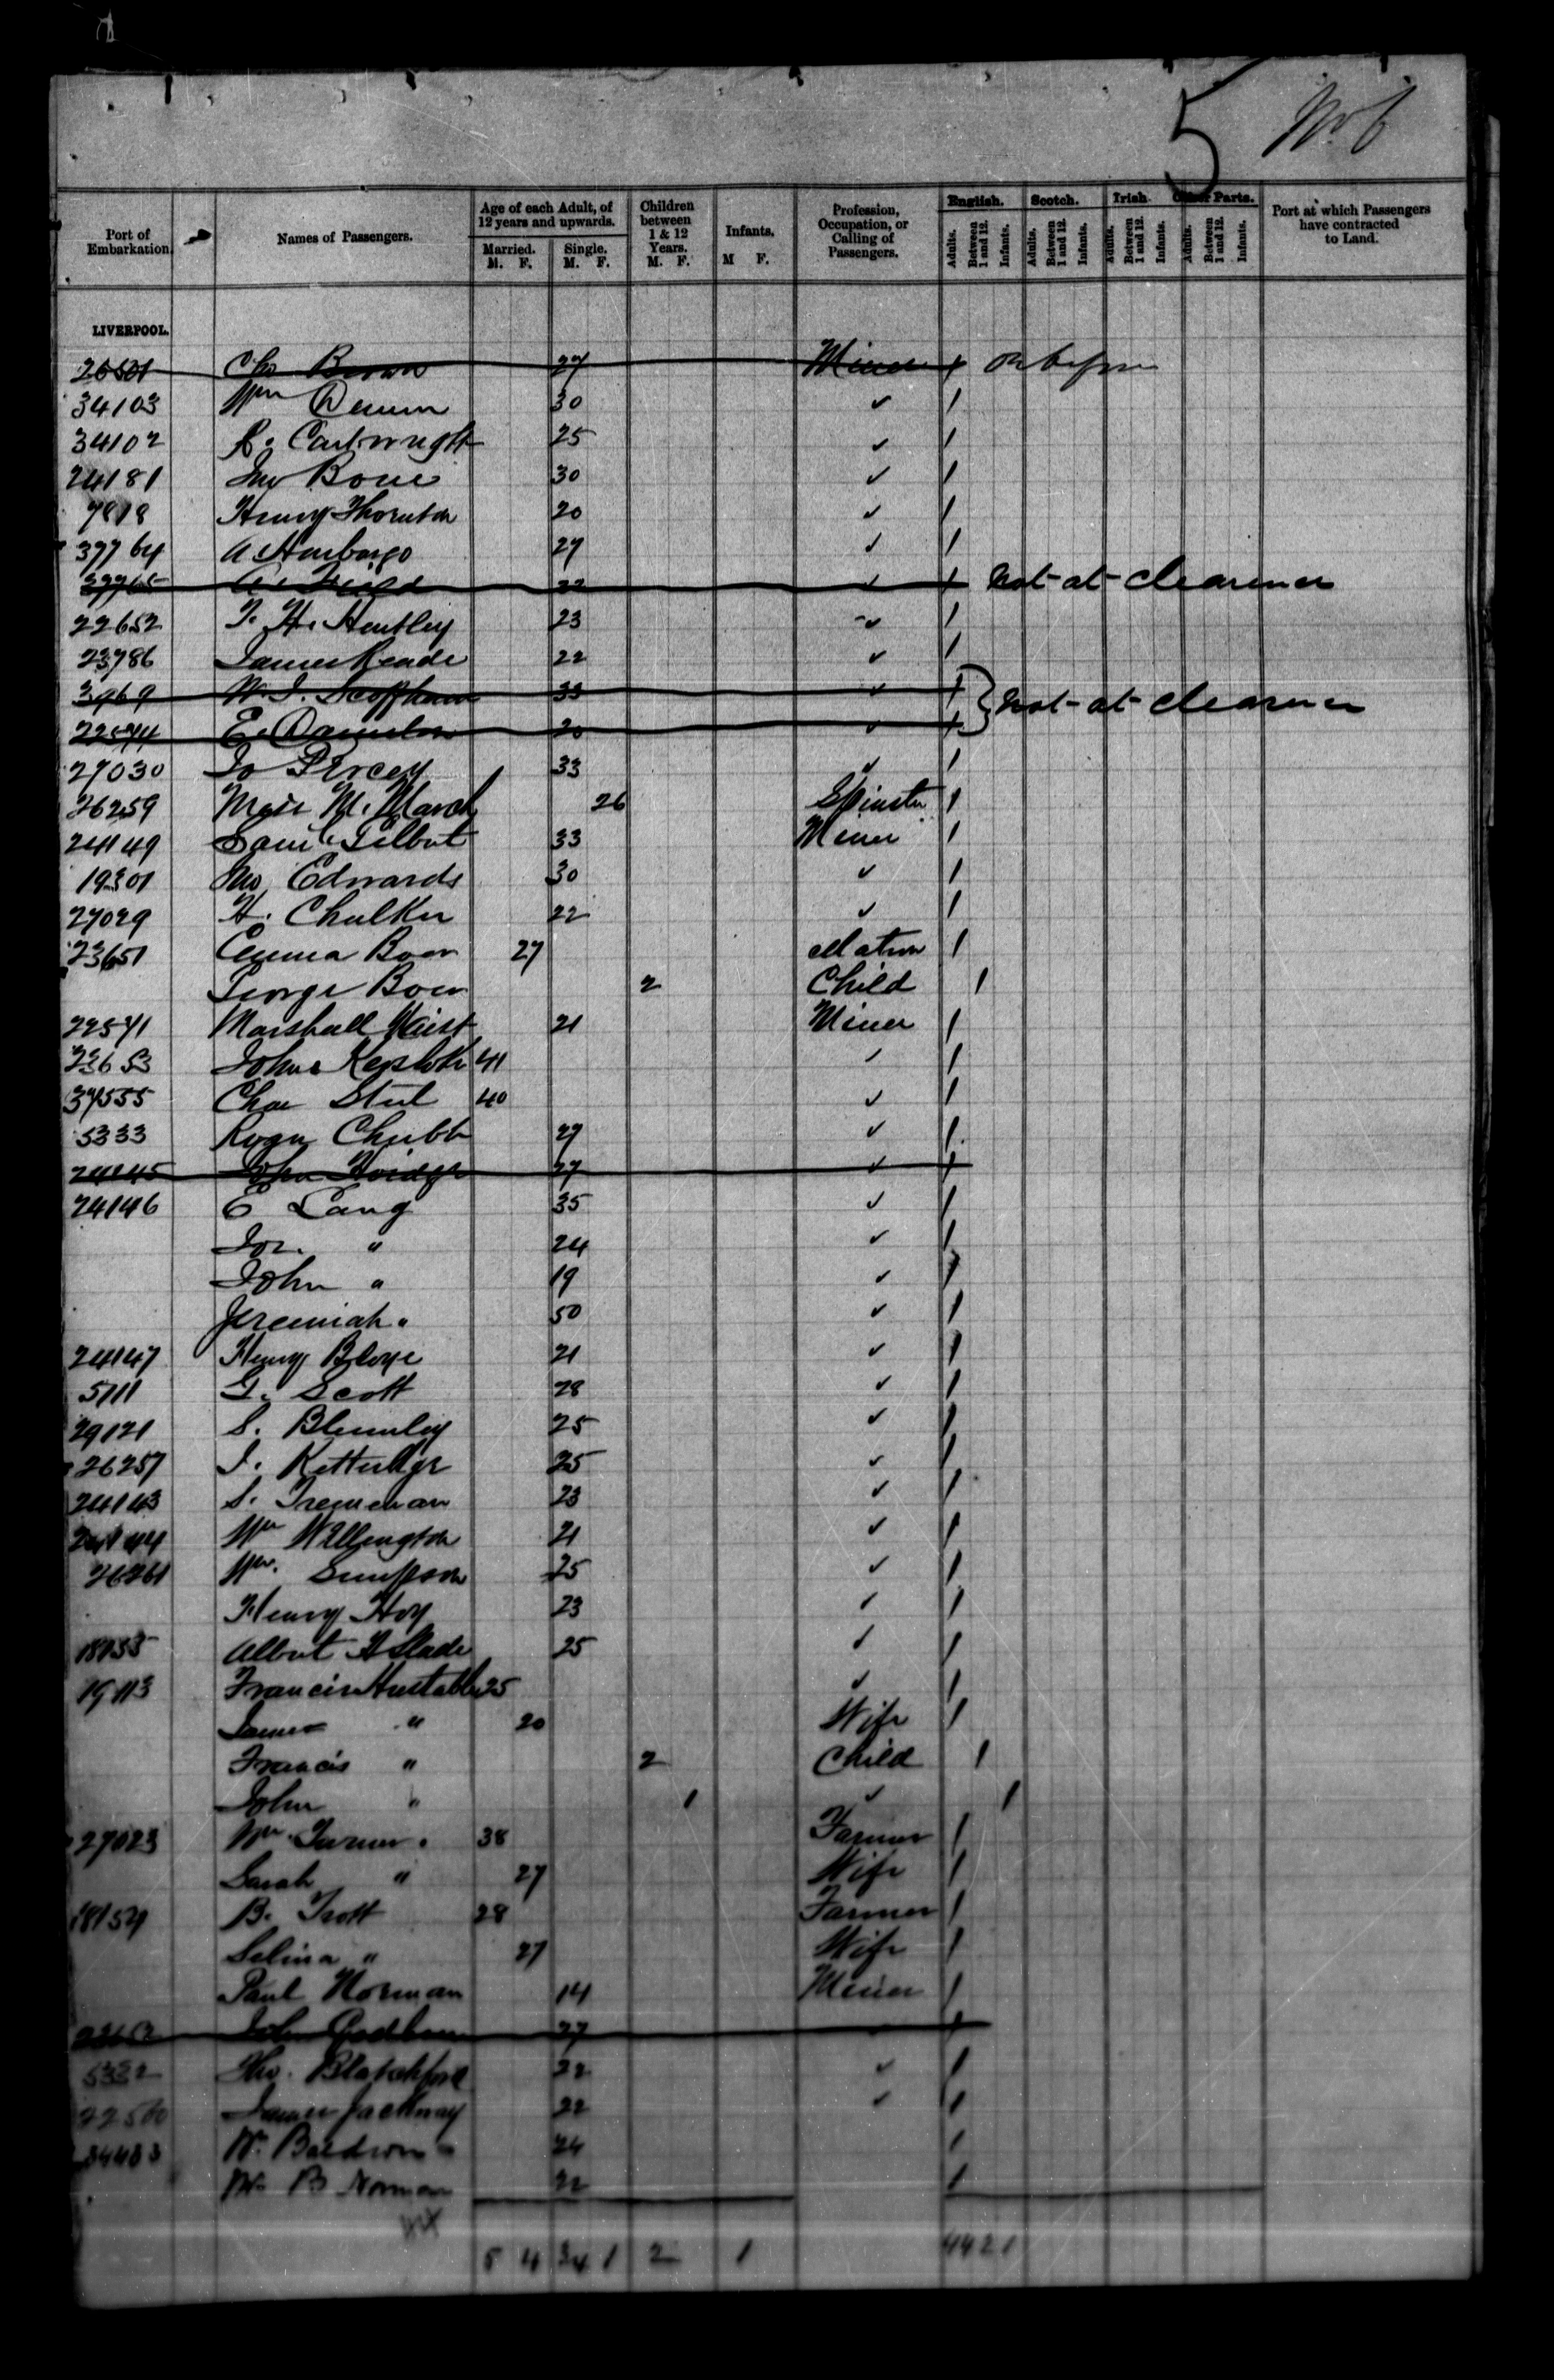 5 No 6
Port of Embarkation
Names of Passengers.
Age of each Adult, of 12 years and upwards.
Married. M. F.
Single. M. F.
Children between 1 & 12 Years. M. F.
Infants. M F.
Profession, Occupation, or Calling of Passengers.
English. Adults. Between 1 and 12. Infants.
Scotch. Adults. Between 1 and 12. Infants.
Irish Adults. Between 1 and 12. Infants.
Other Parts. Adults. Between 1 and 12. Infants.
Port at which Passengers have contracted to Land.
LIVERPOOL.
Brown 27 Miner 1
34103 Wm 30 ✓ 1
34102 Cartwright 25 ✓ 1
24181 30 ✓ 1
Henry Thornton 20 ✓ 1
37764 A. 27 ✓ 1
37765 A. 22 ✓ 1 Not at clearance
22652 T. H. Huntley 23 ✓ 1
23786 James Reade 22 ✓ 1
3969 W. J. 33 ✓ 1
E. 20 ✓ 1 Not at clearance
27030 Jo Piercey 33 ✓ 1
26259 Miss M. March 26 Spinster 1
24149 Saml Gilbert 33 Miner 1
19301 Edwards 30 ✓ 1
27029 H. Chalker 22 ✓ 1
23651 Emma Boon 27 Matron 1
George Boon 2 Child 1
22571 Marshall 21 Miner 1
23653 John 41 ✓ 1
37555 Chas Steel 40 ✓ 1
5333 Roger Chubb 27 ✓ 1
24145 John 27 ✓ 1
24146 E Lang 35 ✓ 1
Jos. " 24 ✓ 1
John " 19 ✓ 1
Jeremiah " 50 ✓ 1
24147 Henry Bloye 21 ✓ 1
5111 G. Scott 28 ✓ 1
29121 S. Blumley 25 ✓ 1
26257 J. Ketteridge 25 ✓ 1
24143 S. Trememan 23 ✓ 1
24144 Wm Willington 21 ✓ 1
26261 Wm. Simpson 25 ✓ 1
Henry Hoy 23 ✓ 1
Albert H Slade 25 ✓ 1
19113 Francis Hustable 25 ✓ 1
" 20 Wife 1
Francis " 2 Child 1
John " 1 ✓ 1
27023 Wm Turner 38 Farmer 1
Sarah " 27 Wife 1
B. Trott 28 Farmer 1
Selina " 27 Wife 1
Paul Norman 14 Miner 1
John 27 1
5332 Blatchford 22 ✓ 1
James Jackway 22 ✓ 1
W. Baldwin 24 1
W. B Norman 22 1
5 4 34 1 2 1 44 2 1